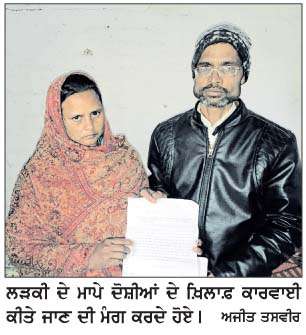 ਲੜਕੀ ਦੇ ਮਾਪੇ ਦੋਸ਼ੀਆਂ ਦੇ ਖ਼ਿਲਾਫ਼ ਕਾਰਵਾਈ
ਕੀਤੇ ਜਾਣ ਦੀ ਮੰਗ ਕਰਦੇ ਹੋਏ। ਅਜੀਤ ਤਸਵੀਰ